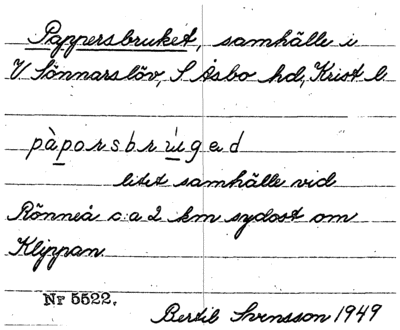 Pappersbruket, samhälle i
V Sönnarslöv, S Åsbo hd, Krist l.
pàporsbrúged
litet samhälle vid
Rönneå c:a 2 km sydost om
Klippan
Nr 5522.
Bertil Svensson 1949